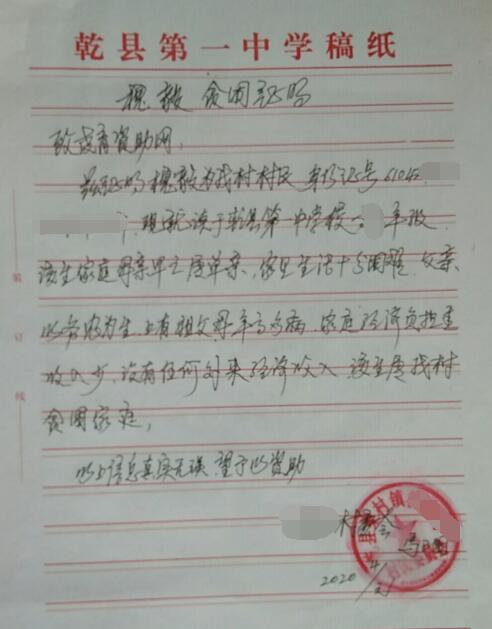 乾县第一中学稿纸
槐毅 贫困证明
致成有资助网:
兹证明槐毅为我村村民 身份证号 6104
现就读于乾县第一中学校 年级.
该生家庭母亲早亡属单亲、家里生活十分困难、父亲
以务农为生、上有祖父母年高多病、家庭经济负担重
收入少、没有任何外来经济收入 该生属我村
贫困家庭,
以上信息真实无误 望予以资助
村委会
2020 4/
装
订
线